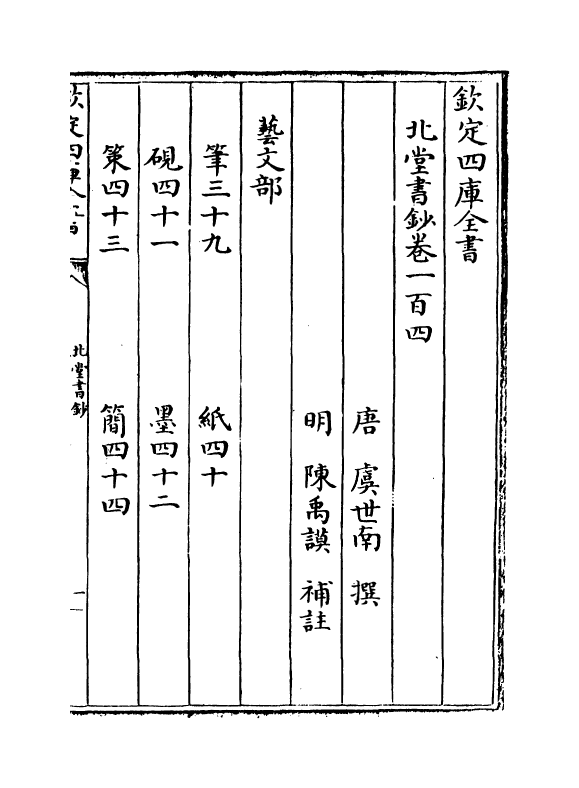 欽定四庫全書
北堂書鈔卷一百四
唐 虞世南 撰
明 陳禹謨 補註
藝文部
筆三十九 紙四十
硯四十一 墨四十二
策四十三 簡四十四
北堂書鈔
一